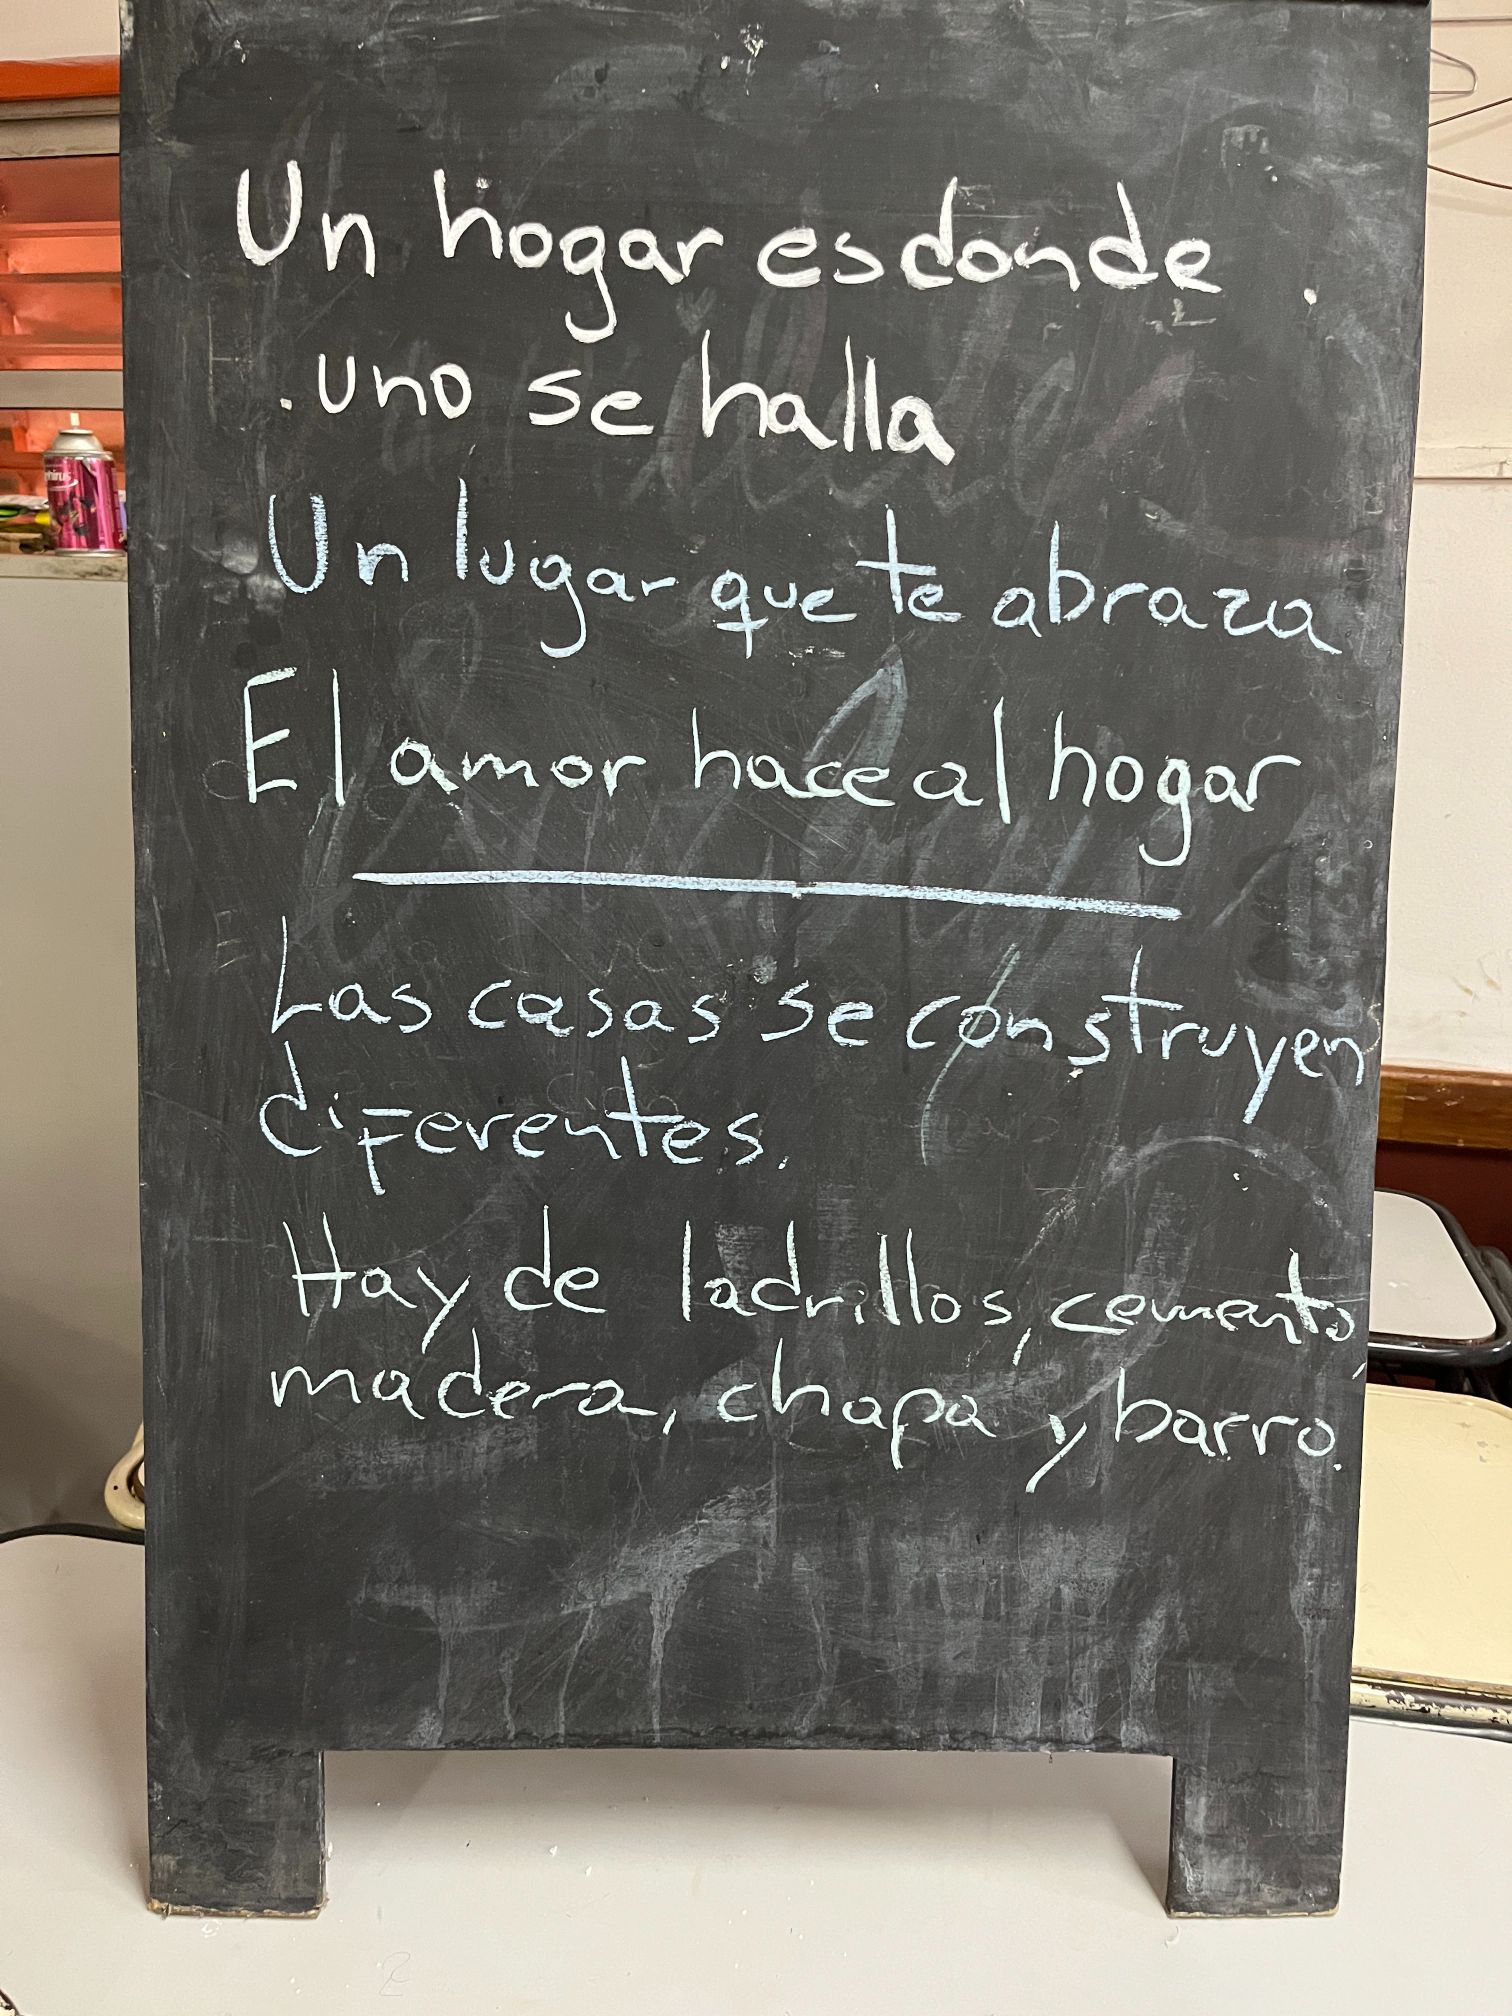 Un hogar es donde
uno se halla
Un lugar que te abraza
El amor hace al hogar
Las casas se construyen
diferentes.
Hay de ladrillos, cemento,
madera, chapa y barro.